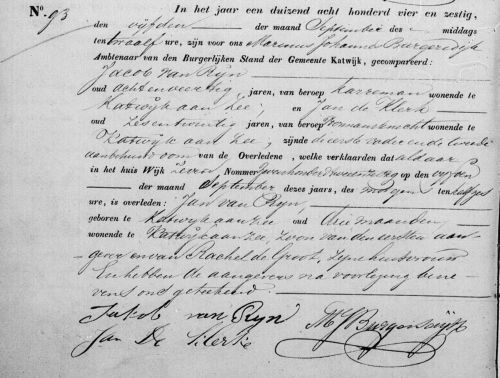 No. 93
In het jaar een duizend acht honderd vier en zestig,
den vijfden der maand September des middags
ten twaalf ure, zijn voor ons Marinus Johannes Burgersdijk
Ambtenaar van den Burgerlijken Stand der Gemeente Katwijk, gecompareerd:
Jacob van Rijn
oud achtenveertig jaren, van beroep Karreman wonende te
Katwijk aan Zee, en Jan de Klerk
oud zesentwintig jaren, van beroep wonende te
Katwijk aan Zee, zijnde de eerste vader en de tweede
aanbehuwd oom van de Overledene, welke verklaarden dat aldaar
in het huis Wijk Nommer op den vijfden
der maand September dezes jaars, des morgens ten half zes
ure, is overleden: Jan van Rijn
geboren te Katwijk aan Zee oud drie maanden
wonende te Katwijk aan Zee, Zoon van den eersten aan-
gever en van Rachel de Groot, zijne huisvrouw
En hebben de aangevers na voorlezing bene-
vens ons geteekend.
Jakob van Ryn MJBurgersdijk
Jan De Klerke